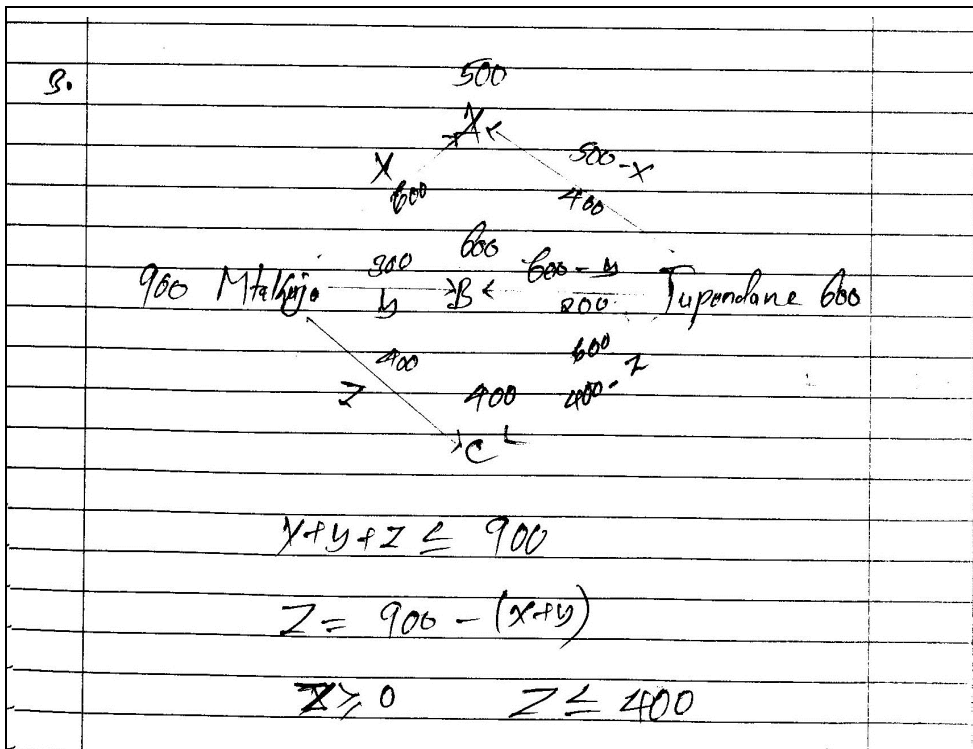 3.
500
A
X 500-x
600 400
900 Mtakuja 300 600 600-y Tupendane 600
y B 200
400 600
Z 400 400-z
C
x+y+z ≤ 900
Z = 900 - (x+y)
Z ≥ 0 Z ≤ 400